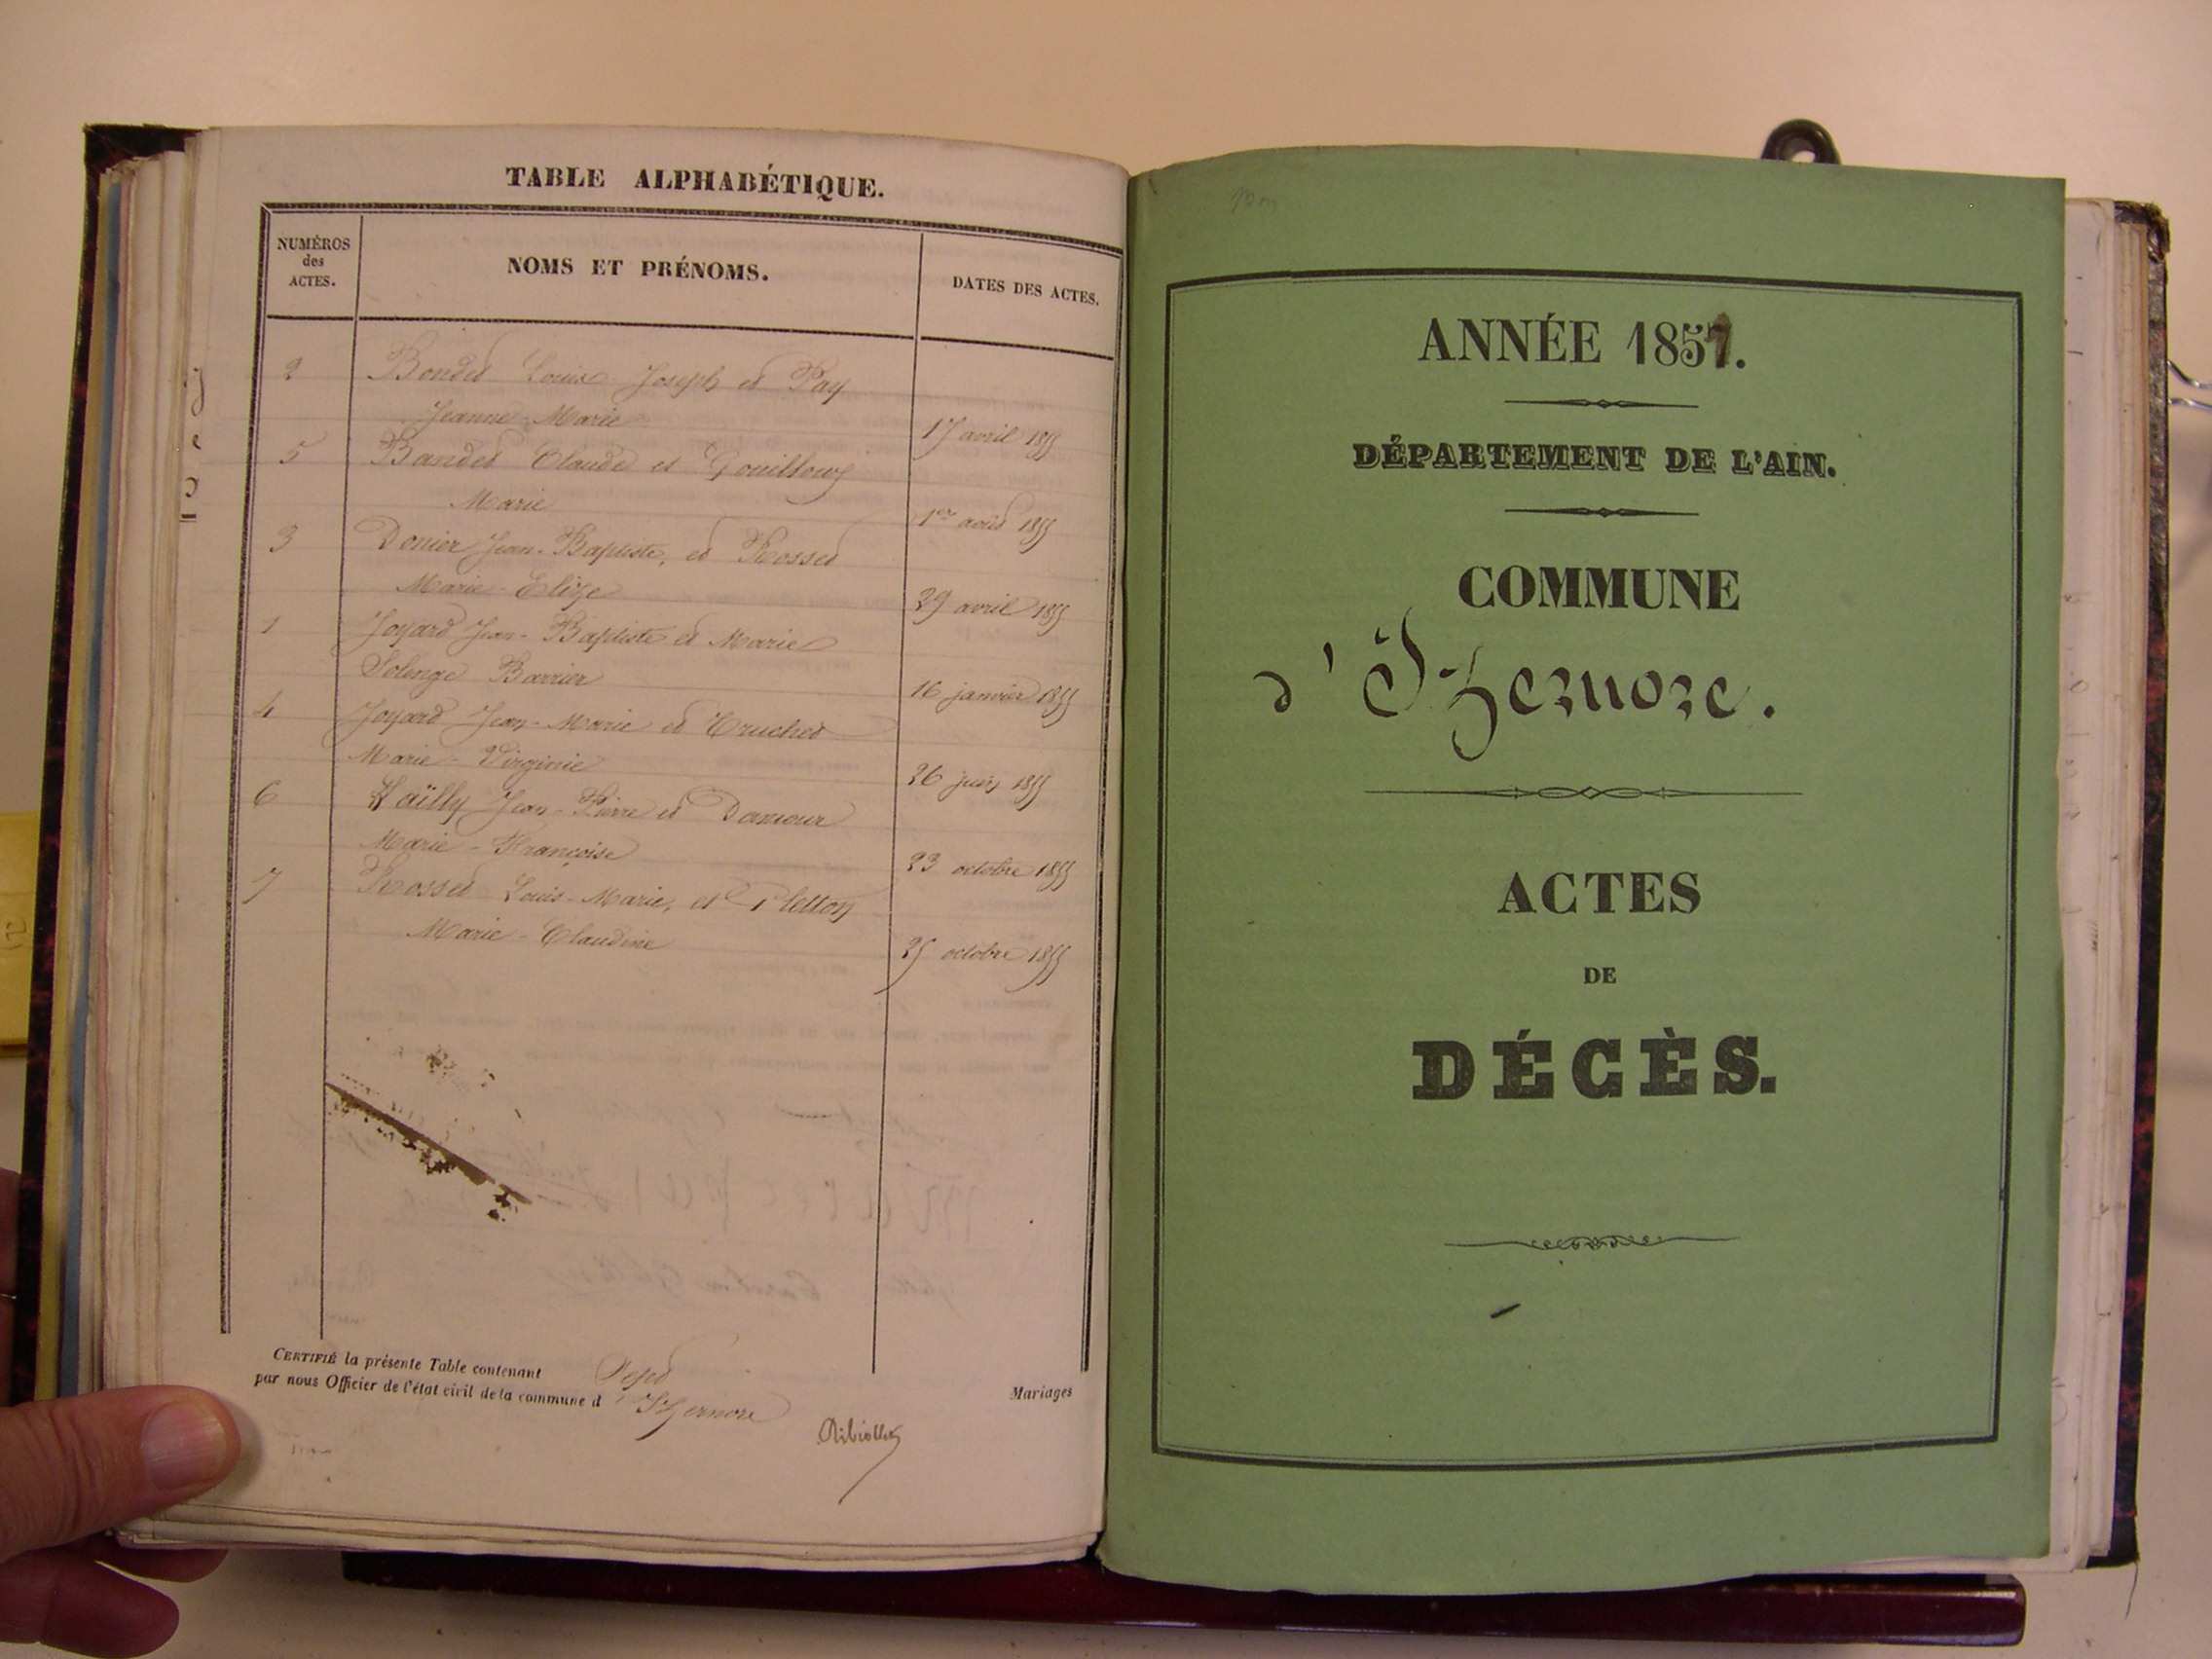 TABLE ALPHABÉTIQUE.
NUMÉROS
des
ACTES.
NOMS ET PRÉNOMS.
DATES DES ACTES.
2 Bondet Louis Joseph et Pay
Jeanne-Marie 17 avril 1855
5 Bandet Claude et Gouilloux
Marie 1er août 1855
3 Donier Jean-Baptiste, et Rosset
Marie-Elize 29 avril 1855
1 Joyard Jean-Baptiste et Marie
Solenge Barrier 16 janvier 1855
4 Joyard Jean-Marie et Truchet
Marie-Virginie 26 juin 1855
6 Vaïlly Jean-Pierre et Damour
Marie-Françoise 23 octobre 1855
7 Rosset Louis-Marie, et Pletton
Marie-Claudine 25 octobre 1855
CERTIFIÉ la présente Table contenant Sept Mariages
par nous Officier de l'état civil de la commune d'Izernore
ANNÉE 1857.
DÉPARTEMENT DE L'AIN.
COMMUNE
d'Izernore.
ACTES
DE
DÉCÈS.